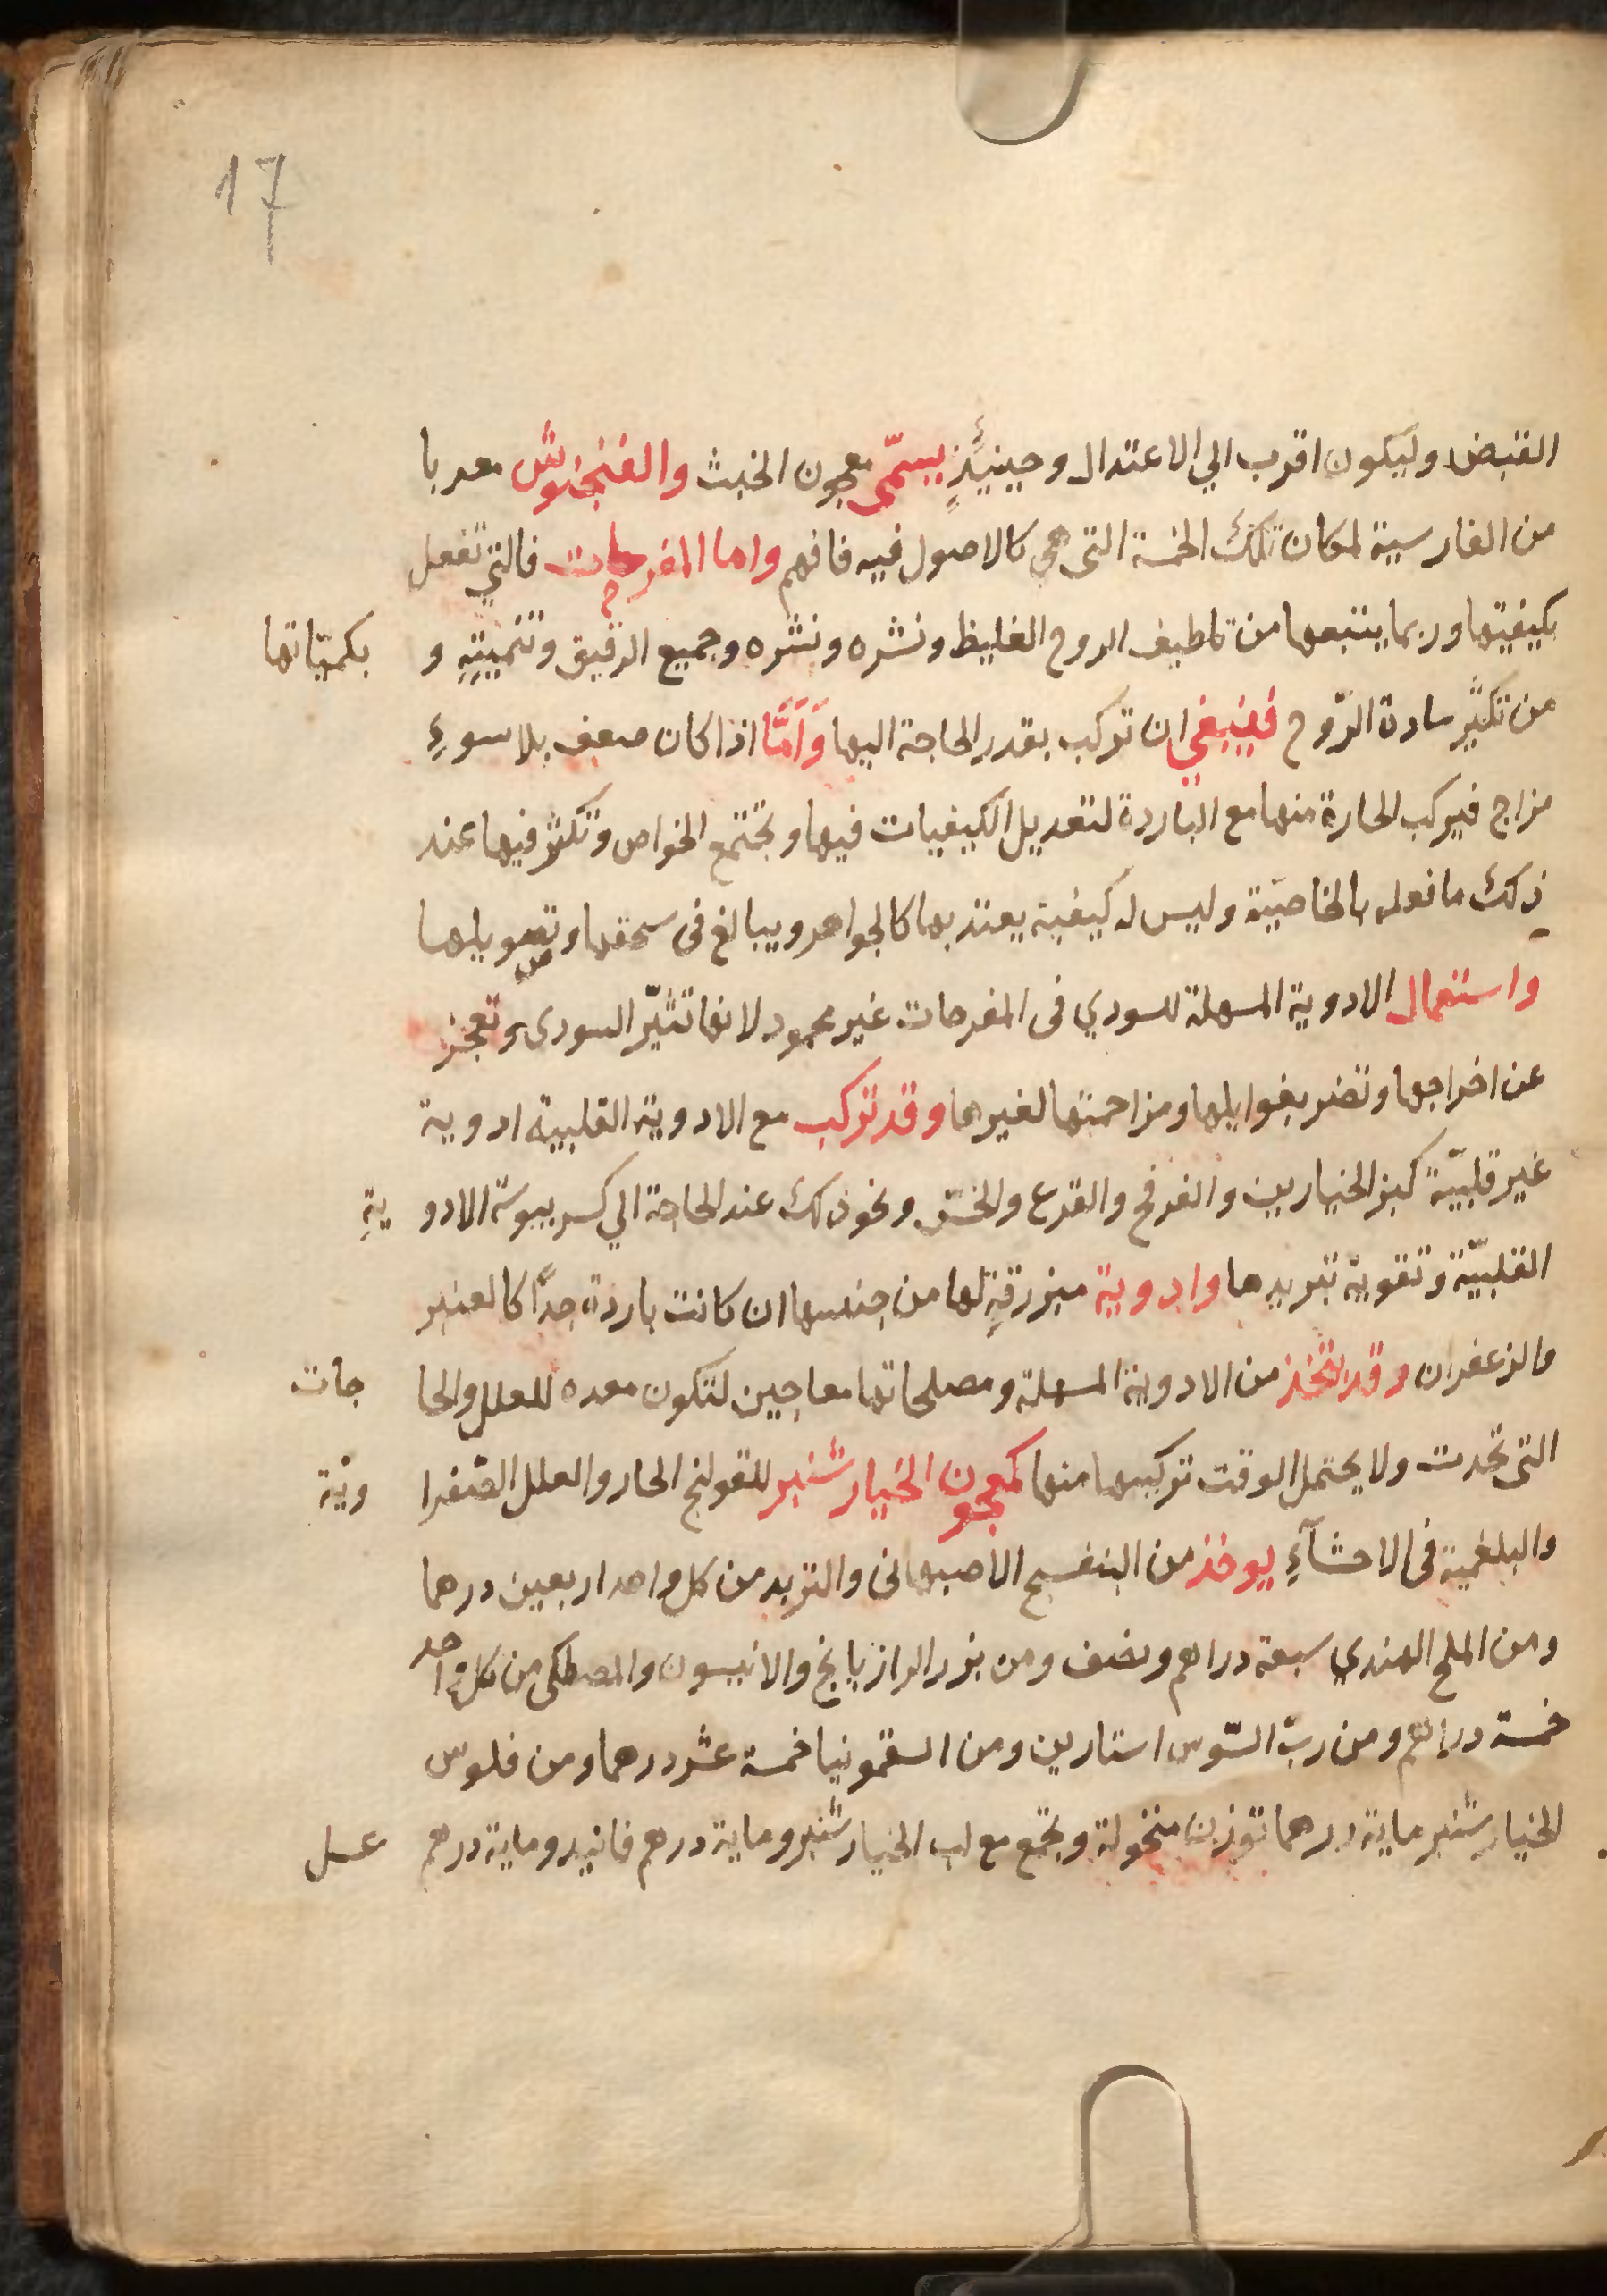 17
القبض وليكون اقرب الي الاعتدال وحينئذٍ يسمّى معجون الخبث والفنجنوش معربا
من الفارسية لمكان تلك الخمسة التى هي كالاصول فيه فافهم واما المفرحات فالتي تفعل
بكيفيتها وربما يتبعها من تلطيف الروح الغليظ ونشره ونشره وجميع الرقيق وتنميتِهِ و بكمّياتها
من تكثير مادة الرّوح فينبغي ان تركب بقدر الحاجة اليها وَاَمَّا اذا كان ضعف بلا سوءِ
مزاج فيركب الحارة منها مع الباردة لتعديل الكيفيات فيها وتجتمع الخواص وتكثر فيها عند
ذلك ما نعلمه بالخاصيّة وليس له كيفية يعتد بها كالجواهر ويبالغ فى سحقها وتصويلها
واستعمال الادوية المسهلة للسودي فى المفرحات غير محمود لانها تثيّر السودى وتعجز
عن اخراجها وتضر بغوايلها ومزاحمتها لغيرها وقد تركب مع الادوية القلبية ادوية
غير قلبيّة كبزر الخيارين والفرفخ والقرع والخسّ ونحو ذلك عند الحاجة الي كسر يبوسة الادو يةِ
القلبيّة وتقوية تبريدها وادوية مبزرقةٍ لها من جنسها ان كانت باردة جدًّا كالعنبر
والزعفران وقد يتخذ من الادوية المسهلة ومصلحاتها معاجين لتكون معده للعلل والحا جات
التى تحدث ولا يحتمل الوقت تركيبها منها كمعجون الخيارشنبر للقولنج الحار والعلل الصّفرا ويّة
والبلغمية فى الاحشآءِ يوخذ من البنفسج الاصبهانى والتربد من كل واحد اربعين درهما
ومن الملح الهندي سبعة دراهم ونصف ومن بزر الرازيانج والانيسون والمصطكى من كل واحد
خمسة دراهم ومن ربّ السّوس استارين ومن السقمونيا خمسة عشر درهما ومن فلوس
الخيارشنبر ماية درهما توزن منخولة وتجمع مع لب الخيارشنبر وماية درهم فانيد وماية درهم عسل